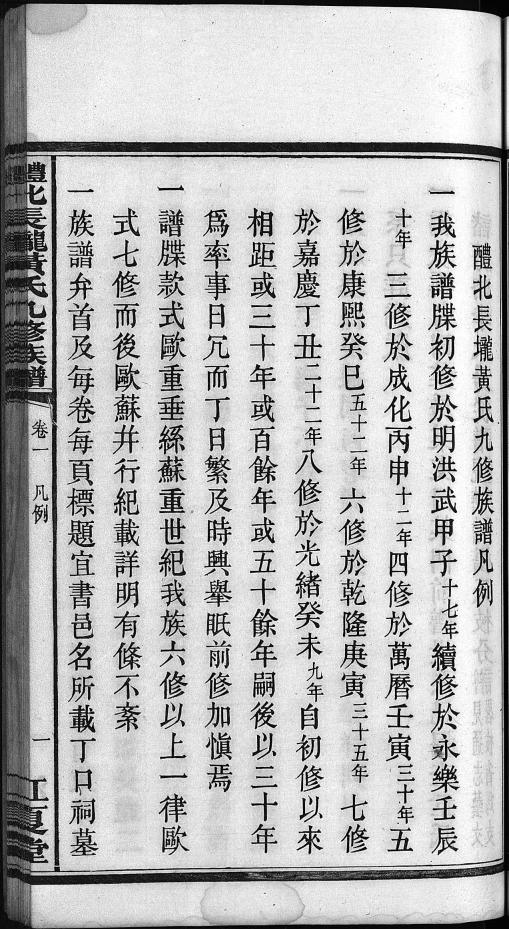 醴北長壠黃氏九修族譜凡例
一我族譜牒初修於明洪武甲子十七年續修於永樂壬辰
十年三修於成化丙申十二年四修於萬曆壬寅三十年五
修於康熙癸巳五十二年六修於乾隆庚寅三十五年七修
於嘉慶丁丑二十二年八修於光緒癸未九年自初修以來
相距或三十年或百餘年或五十餘年嗣後以三十年
爲率事日冗而丁日繁及時興舉眂前修加愼焉
一譜牒款式歐重垂絲蘇重世紀我族六修以上一律歐
式七修而後歐蘇幷行紀載詳明有條不紊
一族譜弁首及每卷每頁標題宜書邑名所載丁口祠墓
醴北長壠黃氏九修族譜
卷一 凡例
一
江夏堂